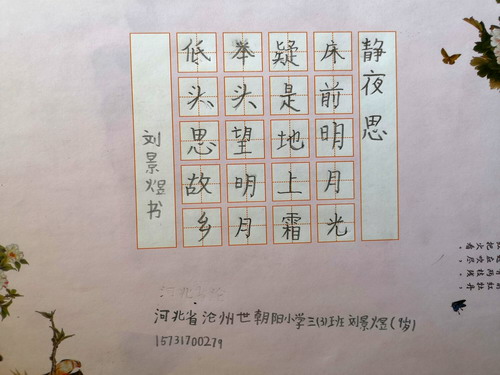 静夜思
床前明月光
疑是地上霜
举头望明月
低头思故乡
刘景煜书
河北省沧州世朝阳小学三(3)班 刘景煜(9岁)
15731700279